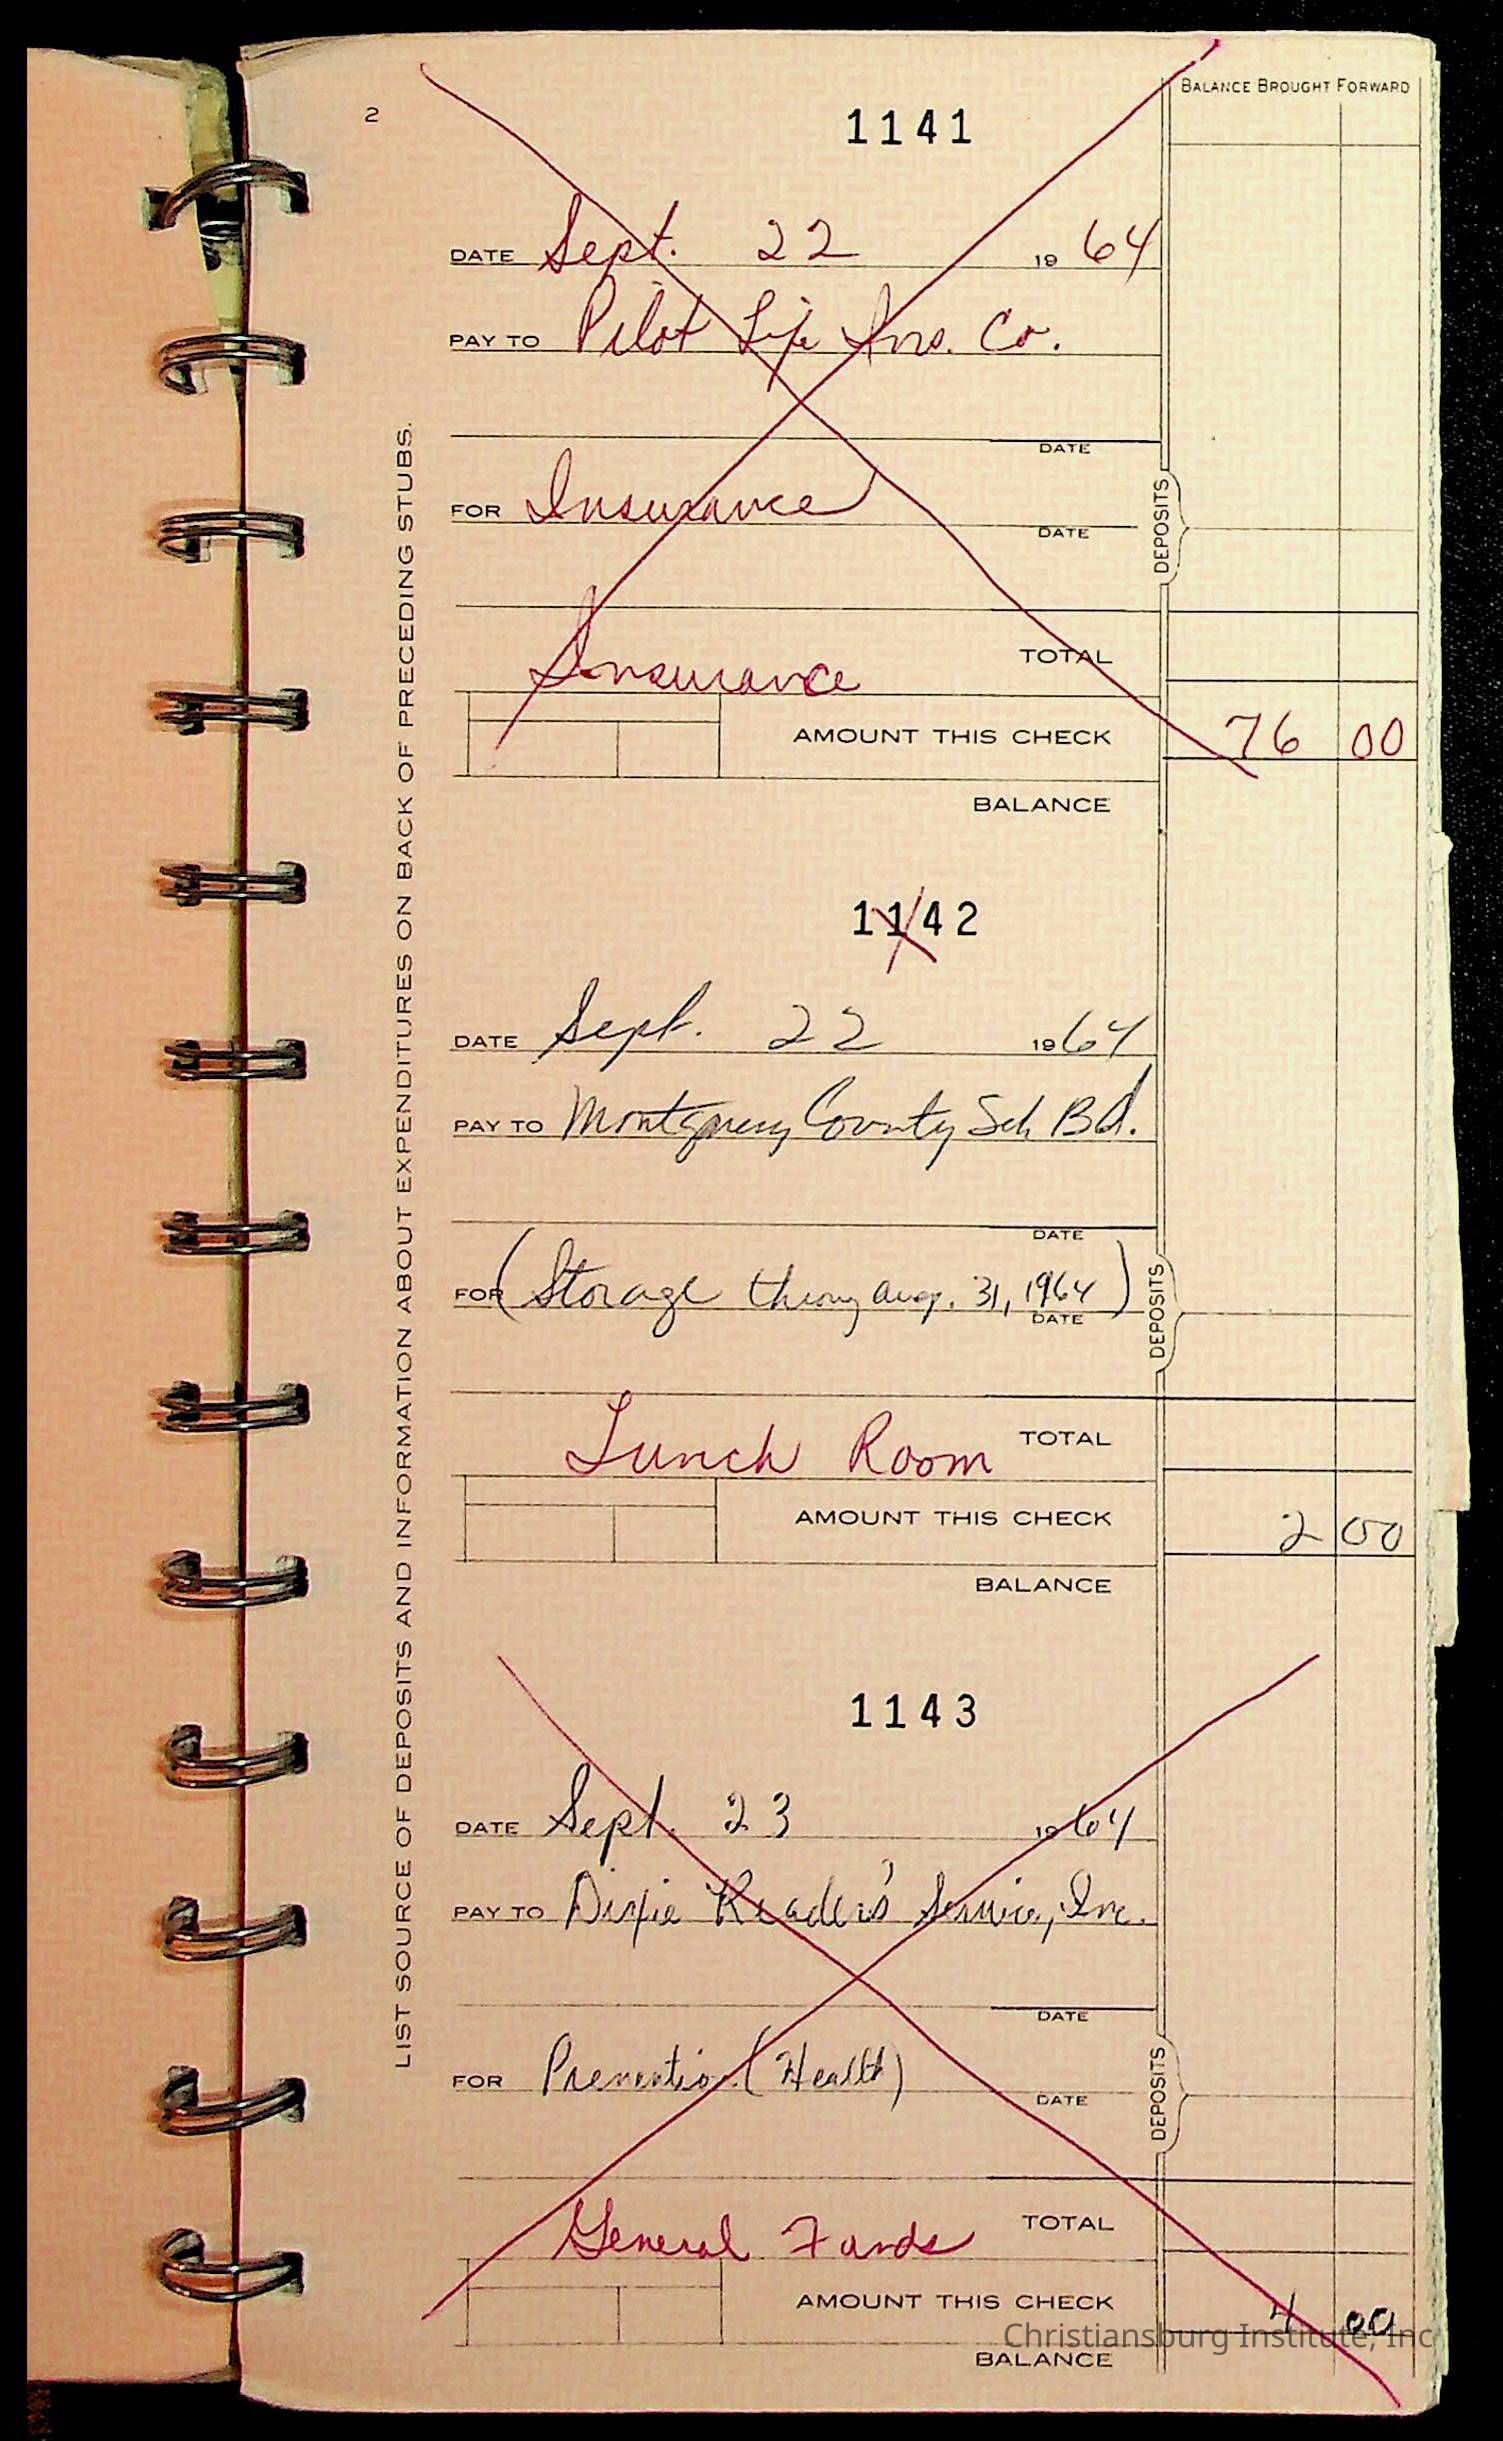 2
BALANCE BROUGHT FORWARD
1141
DATE Sept. 22 1964
PAY TO Pilot Life Ins. Co.
DATE
FOR Insurance
DATE
DEPOSITS
Insurance TOTAL
AMOUNT THIS CHECK 76 00
BALANCE
LIST SOURCE OF DEPOSITS AND INFORMATION ABOUT EXPENDITURES ON BACK OF PRECEDING STUBS.
1142
DATE Sept. 22 1964
PAY TO Montgomery County Sch Bd.
DATE
FOR (Storage Aug. 31, 1964)
DATE
DEPOSITS
Lunch Room TOTAL
AMOUNT THIS CHECK 2 00
BALANCE
1143
DATE Sept. 23 1964
PAY TO Dixie Reader's Service, Inc.
DATE
FOR Prevention (Health)
DATE
DEPOSITS
General Funds TOTAL
AMOUNT THIS CHECK 4 00
Christiansburg Institute, Inc
BALANCE